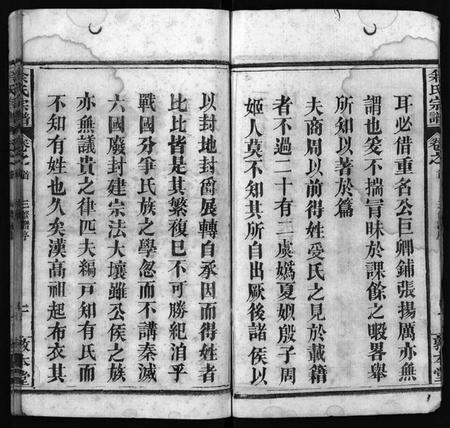 余氏宗譜
卷之首
耳必借重名公巨卿鋪張揚厲亦無
謂也爰不揣冒昧於課餘之暇畧舉
所知以著於篇
夫商周以前得姓受氏之見於載籍
者不過二十有二虞嬀夏姒殷子周
姬人莫不知其所自出厥後諸侯以
以封地封爵展轉自承因而得姓者
比比皆是其繁複已不可勝紀洎乎
戰國分爭氏族之學忽而不講秦滅
六國廢封建宗法大壞雖公侯之族
亦無議貴之律匹夫編戸知有氏而
不知有姓也久矣漢高祖起布衣其
余氏宗譜
卷之首
敦本堂